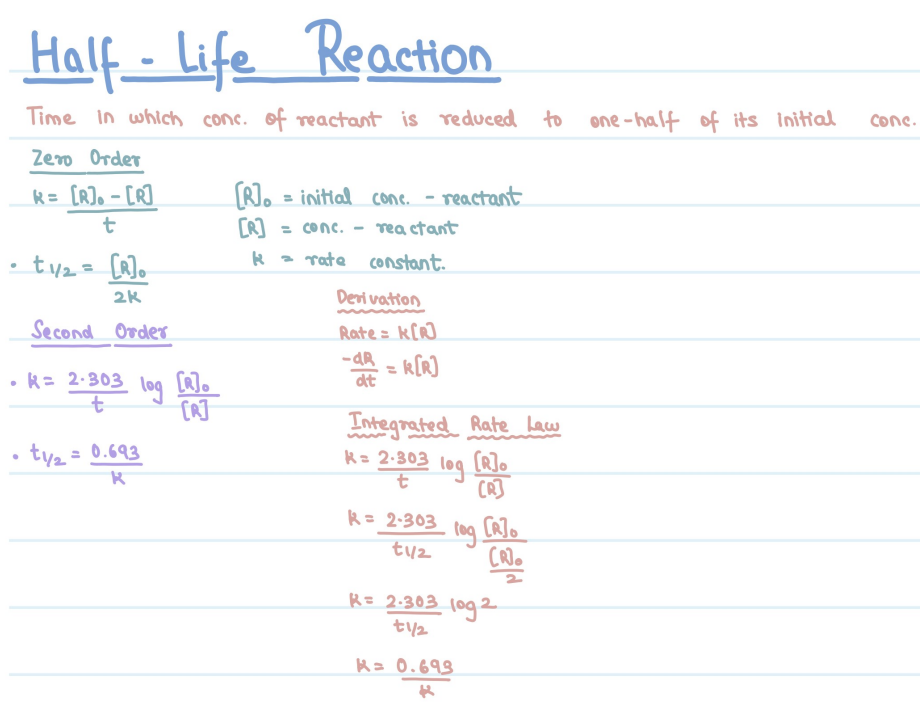 Half - Life Reaction
Time in which conc. of reactant is reduced to one-half of its initial conc.
Zero Order
k = [R]₀ - [R] / t
• t1/2 = [R]₀ / 2k
[R]₀ = initial conc. - reactant
[R] = conc. - reactant
k = rate constant.
Second Order
• k = 2.303 / t log [R]₀ / [R]
• t1/2 = 0.693 / k
Derivation
Rate = k[R]
-dR / dt = k[R]
Integrated Rate Law
k = 2.303 / t log [R]₀ / [R]
k = 2.303 / t1/2 log [R]₀ / [R]₀ / 2
k = 2.303 / t1/2 log 2
k = 0.693 / k